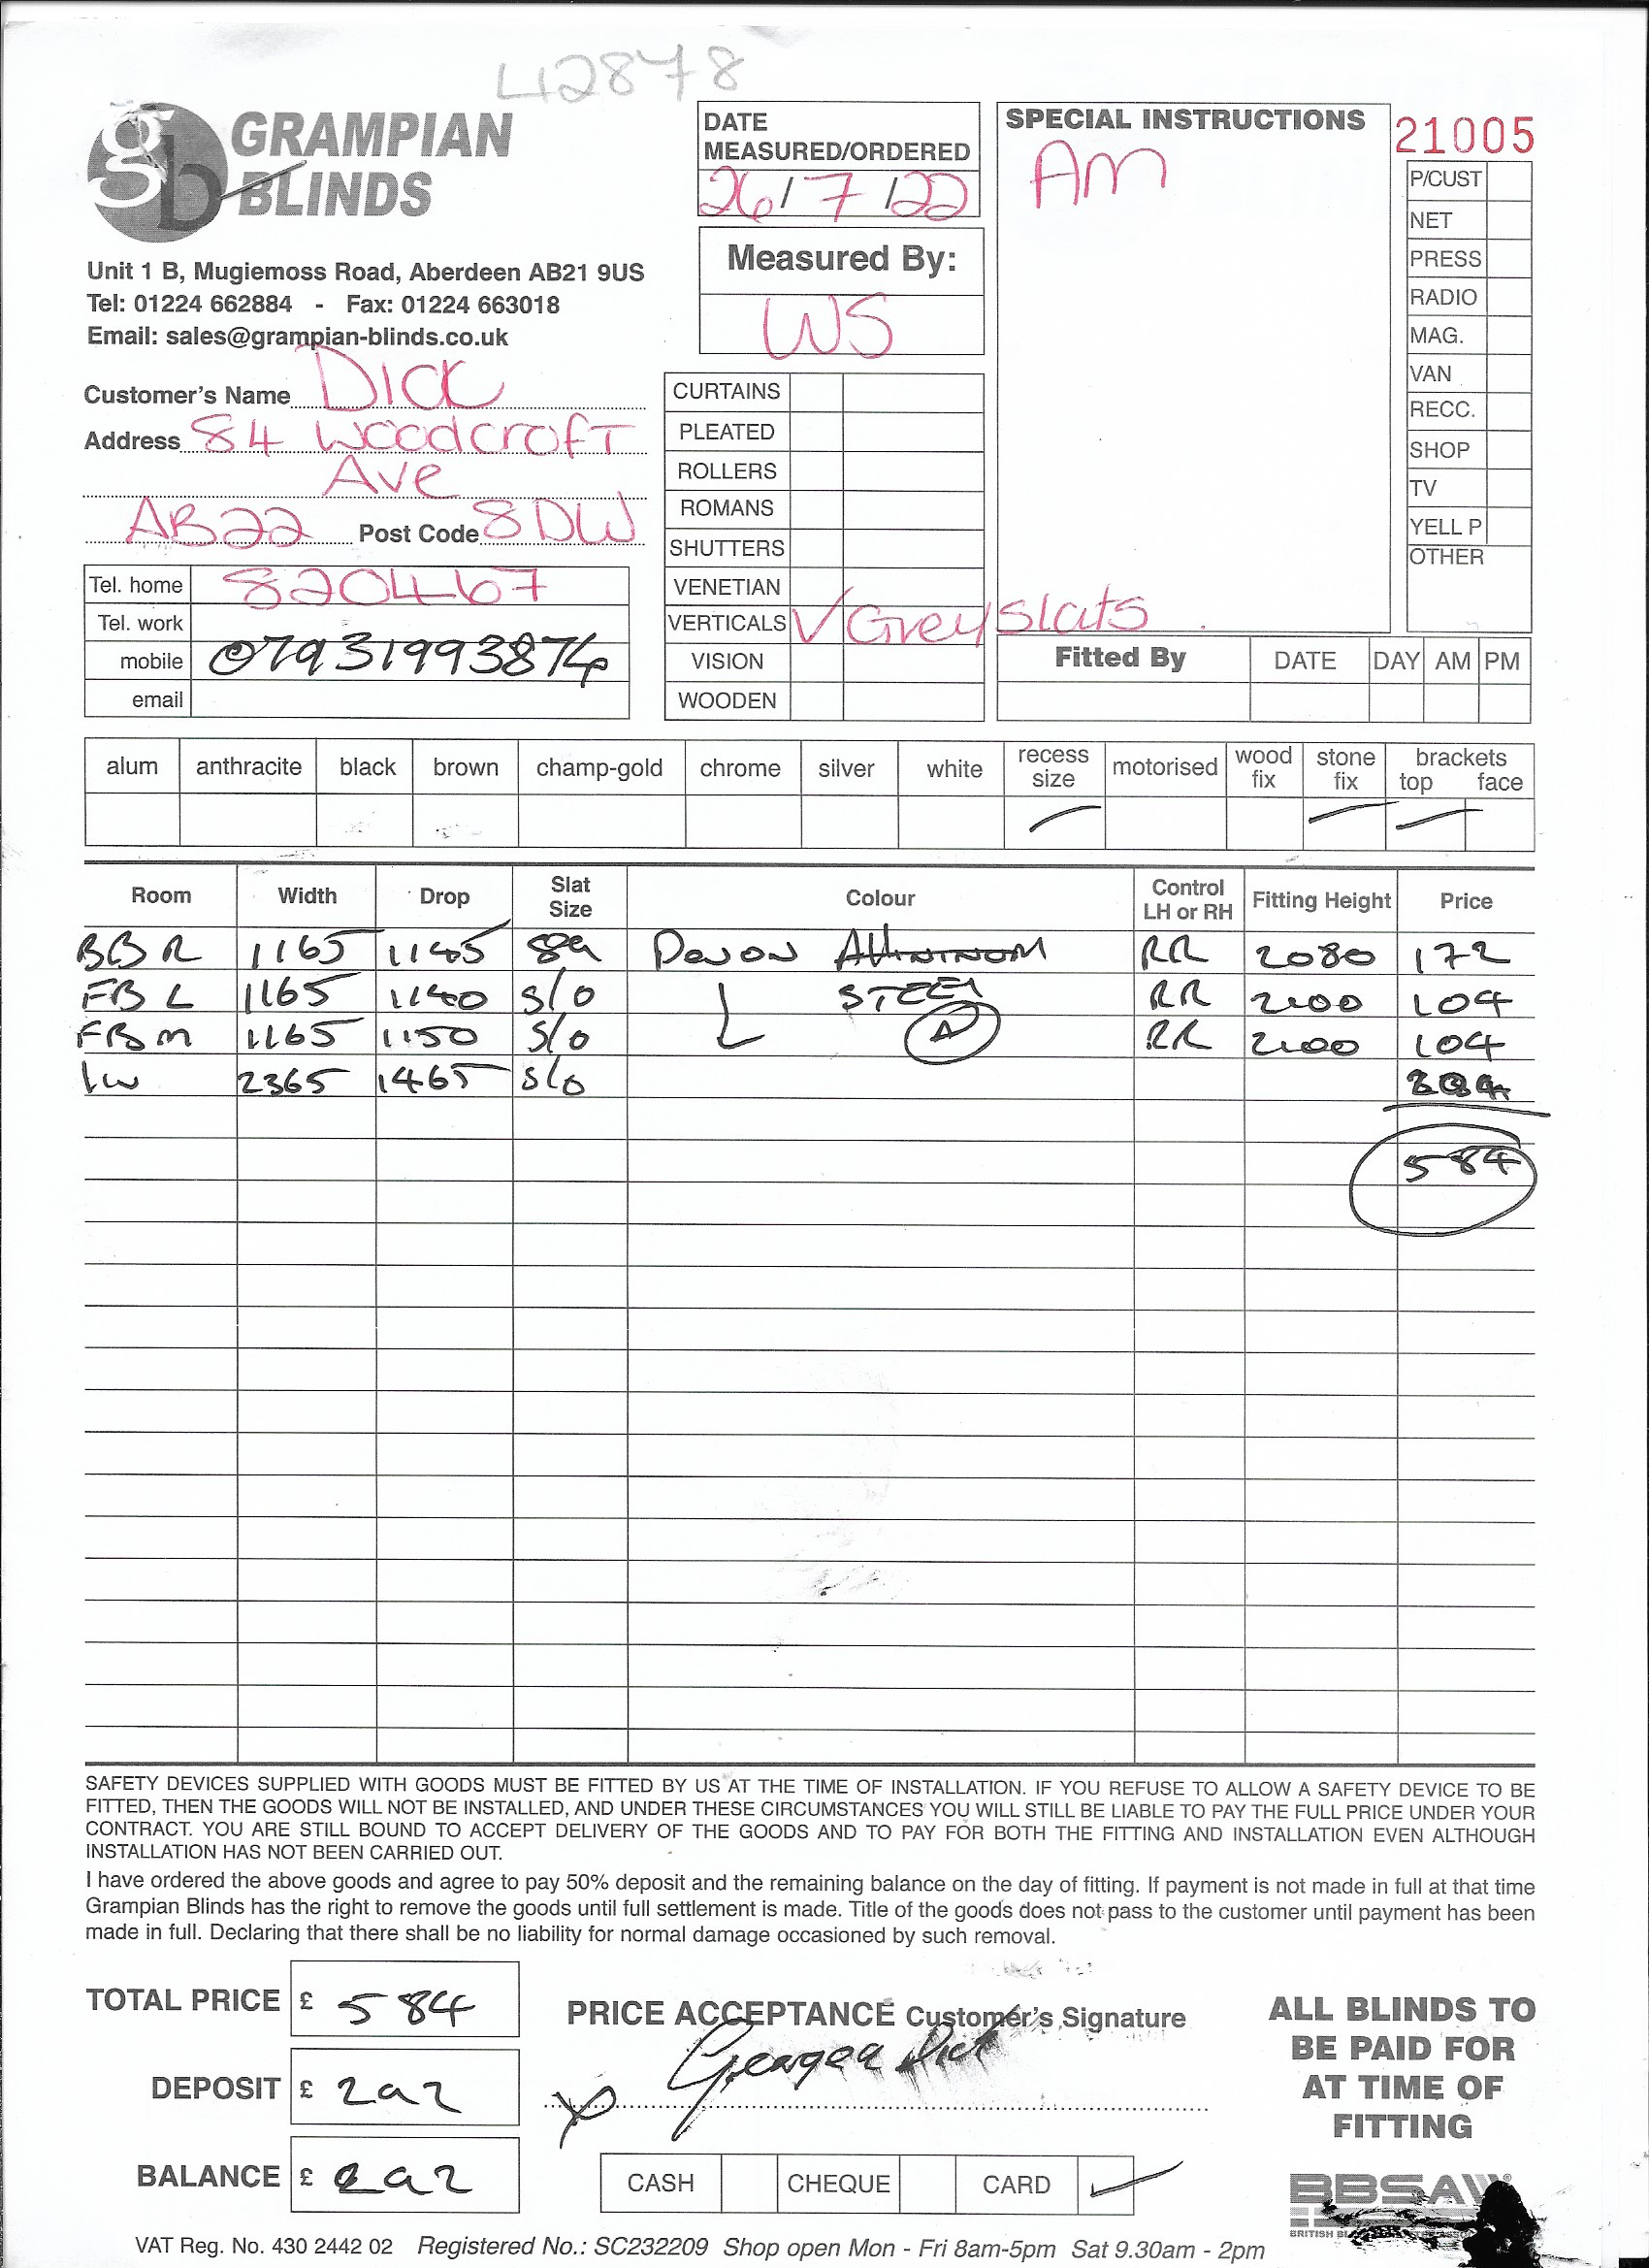 42878
GRAMPIAN
BLINDS
Unit 1 B, Mugiemoss Road, Aberdeen AB21 9US
Tel: 01224 662884 - Fax: 01224 663018
Email: sales@grampian-blinds.co.uk
Customer's Name Dick
Address 84 Woodcroft
Ave
AB22 Post Code 8DW
Tel. home 820467
Tel. work
mobile 07931993874
email
DATE
MEASURED/ORDERED
26/7/22
Measured By:
WS
CURTAINS
PLEATED
ROLLERS
ROMANS
SHUTTERS
VENETIAN
VERTICALS ✓ Grey slats
VISION
WOODEN
SPECIAL INSTRUCTIONS
AM
21005
P/CUST
NET
PRESS
RADIO
MAG.
VAN
RECC.
SHOP
TV
YELL P
OTHER
Fitted By DATE DAY AM PM
alum anthracite black brown champ-gold chrome silver white recess size motorised wood fix stone fix brackets top face
Room Width Drop Slat Size Colour Control LH or RH Fitting Height Price
BBR 1165 1145 89 Devon RR 2080 172
FBL 1165 1140 s/o STEEL RR 2100 104
FBM 1165 1150 s/o A RR 2100 104
LW 2365 1465 s/o 204
584
SAFETY DEVICES SUPPLIED WITH GOODS MUST BE FITTED BY US AT THE TIME OF INSTALLATION. IF YOU REFUSE TO ALLOW A SAFETY DEVICE TO BE
FITTED, THEN THE GOODS WILL NOT BE INSTALLED, AND UNDER THESE CIRCUMSTANCES YOU WILL STILL BE LIABLE TO PAY THE FULL PRICE UNDER YOUR
CONTRACT. YOU ARE STILL BOUND TO ACCEPT DELIVERY OF THE GOODS AND TO PAY FOR BOTH THE FITTING AND INSTALLATION EVEN ALTHOUGH
INSTALLATION HAS NOT BEEN CARRIED OUT.
I have ordered the above goods and agree to pay 50% deposit and the remaining balance on the day of fitting. If payment is not made in full at that time
Grampian Blinds has the right to remove the goods until full settlement is made. Title of the goods does not pass to the customer until payment has been
made in full. Declaring that there shall be no liability for normal damage occasioned by such removal.
TOTAL PRICE £ 584
DEPOSIT £ 292
BALANCE £ 292
PRICE ACCEPTANCE Customer's Signature
x Dick
CASH CHEQUE CARD ✓
ALL BLINDS TO
BE PAID FOR
AT TIME OF
FITTING
BBSA
BRITISH
VAT Reg. No. 430 2442 02 Registered No.: SC232209 Shop open Mon - Fri 8am-5pm Sat 9.30am - 2pm